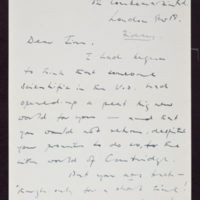 London SW18.
Dear Tom,
I had begun
to think that someone
Scientific in the U.S. had
opened up a great big new
world for you — and that
you would not return, despite
your promise to do so, for the
world of Cambridge.
But you are back –
though only for a short time!